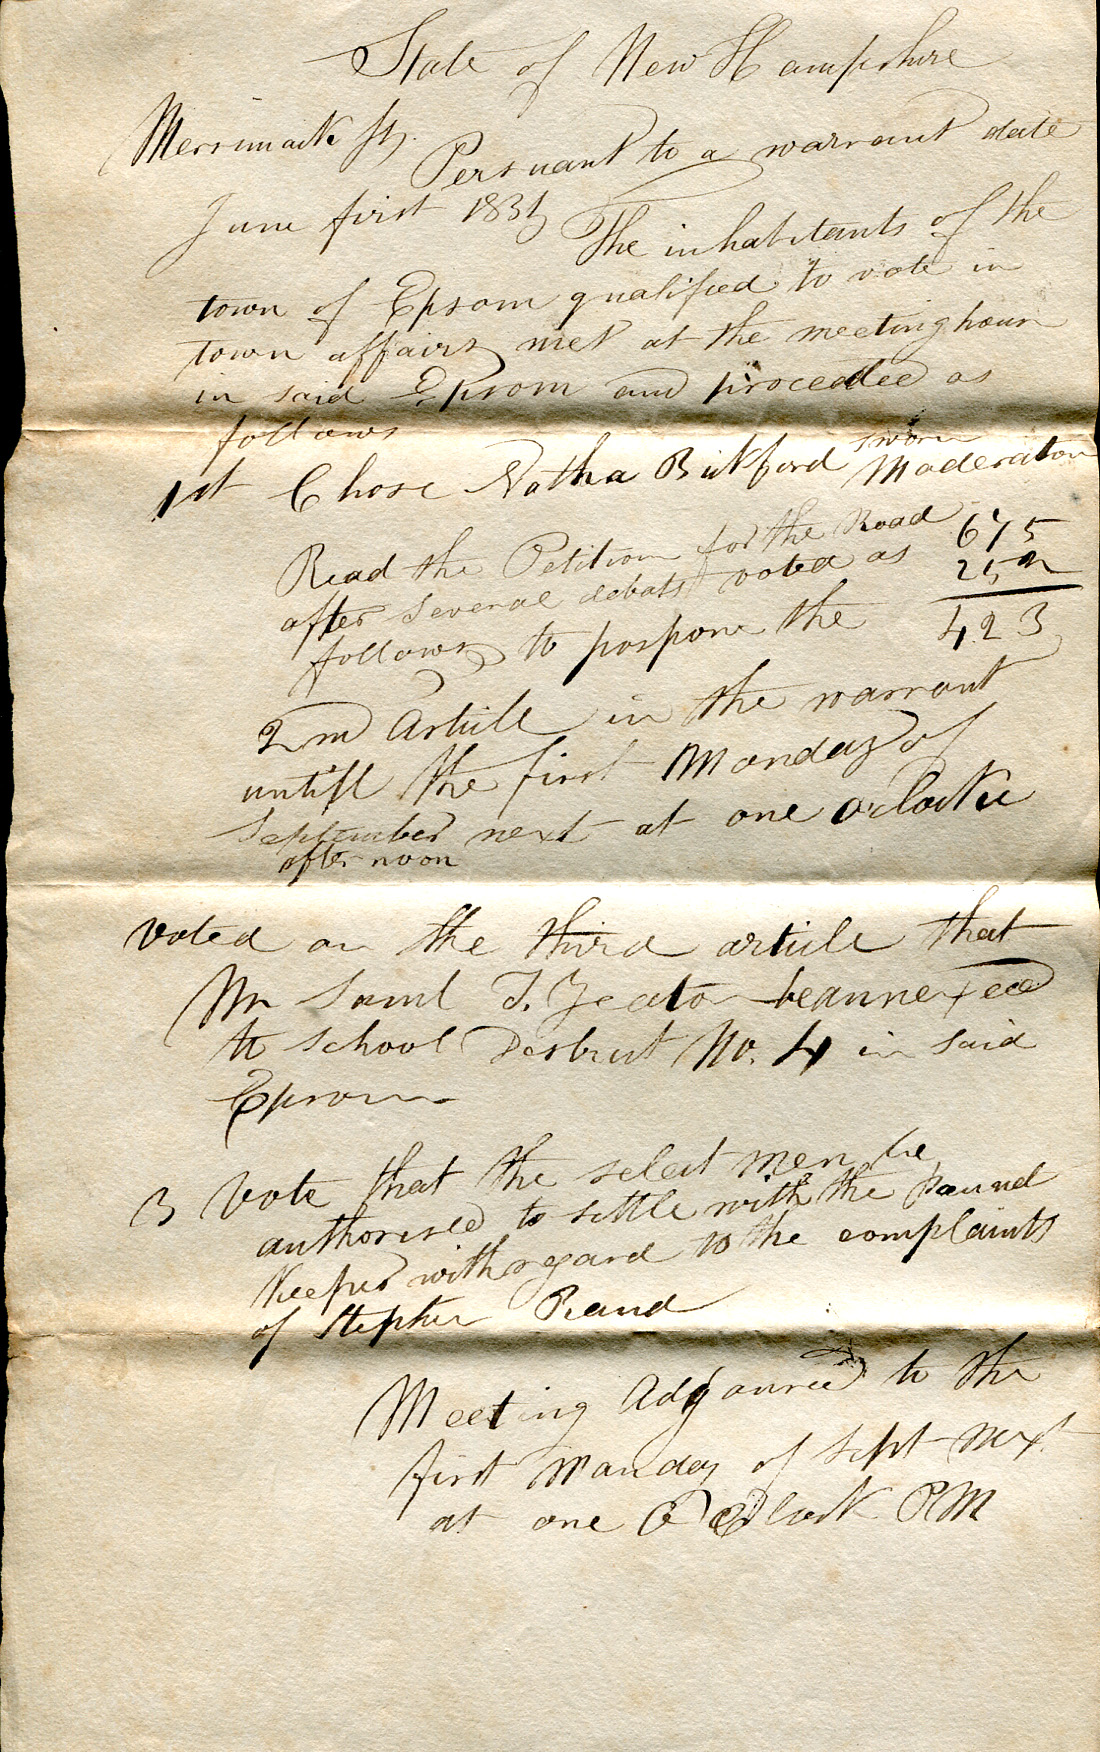 State of New Hampshire
Merrimack ss.
Persuant to a warrant date
June first 183
The inhabitants of the
town of Epsom qualified to vote in
town affairs met at the meetinghous
in said Epsom and proceedeed as
follows
sworn
1st Chose Natha Bickford Moderator
Read the Petition for the Road 675
after several debats voted as 252
follows to pospone the 423
2nd Article in the warrant
untill the first Monday of
September next at one oclocke
after noon
voted on the third article that
Mr Saml T. Yeaton be annexeed
to school Destrict No. 4 in said
Epsom
3 Vote that the select men be
authorised to settle with the pound
Keeper with regard to the complaints
of Stephen Rand
Meeting Adjouned to the
first Monday of Sept next
at one O Clock PM